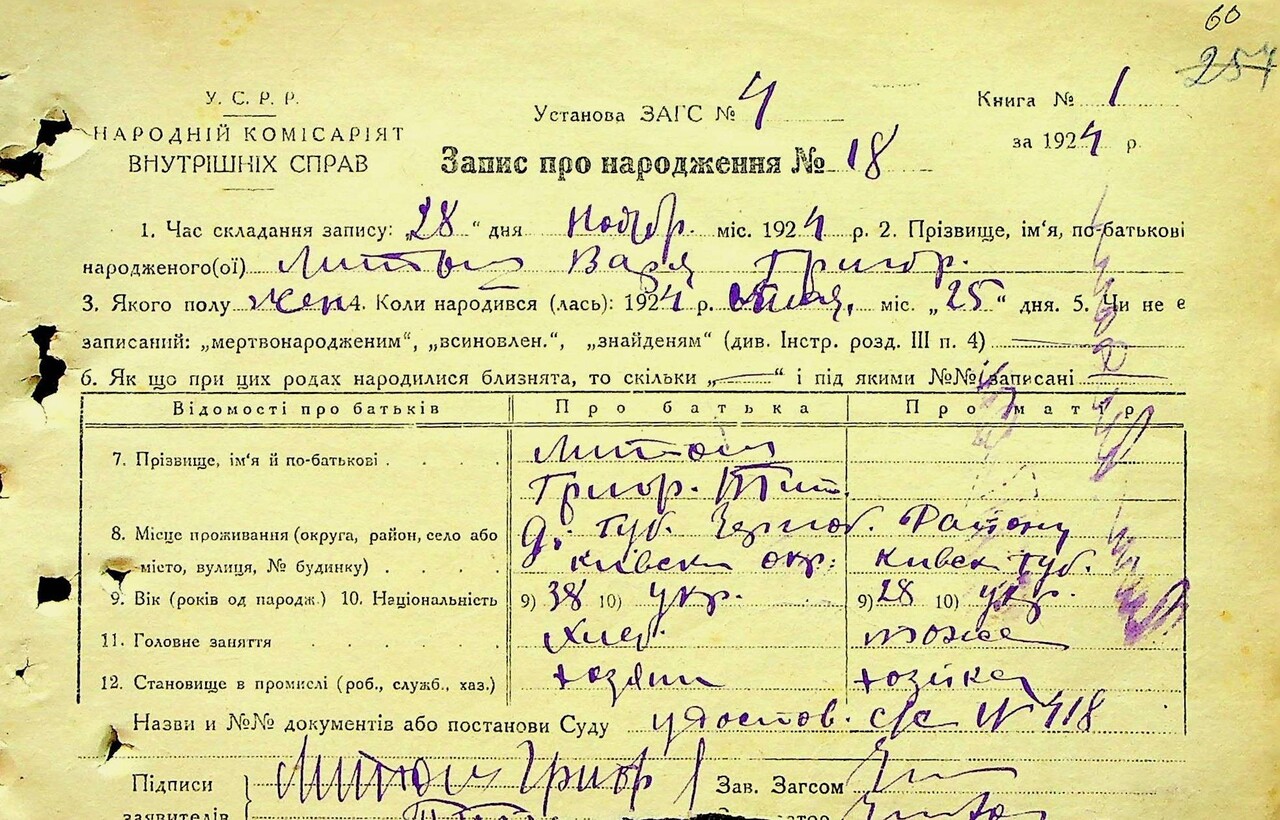 60
254
У. С. Р. Р.
НАРОДНІЙ КОМІСАРІЯТ
ВНУТРІШНІХ СПРАВ
Установа ЗАГС № 4
Книга № 1
за 1924 р.
Запис про народження № 18
1. Час складання запису: „28“ дня Ноябр. міс. 1924 р. 2. Прізвище, ім'я, по-батькові
народженого(ої) Варя Григор.
3. Якого полу жен 4. Коли народився (лась): 1924 р. міс. „25“ дня. 5. Чи не є
записаний: „мертвонародженим“, „всиновлен.“, „знайденям“ (див. Інстр. розд. III п. 4)
6. Як що при цих родах народилися близнята, то скільки „ “ і під якими №№ записані
Відомості про батьків Про батька Про матір
7. Прізвище, ім'я й по-батькові . . . .
Григор. Тит.
8. Місце проживання (округа, район, село або Губ. Району
місто, вулиця, № будинку) . . . . київськ окр: київск губ.
9. Вік (років од народж.) 10. Національність 9) 38 10) укр. 9) 28 10) укр.
11. Головне заняття . . . . . хлеб. тоже
12. Становище в промислі (роб., служб., хаз.) хозяин хозяйка
Назви и №№ документів або постанови Суду удостов. с/с № 418
Підписи Григор Зав. Загсом
заявителів